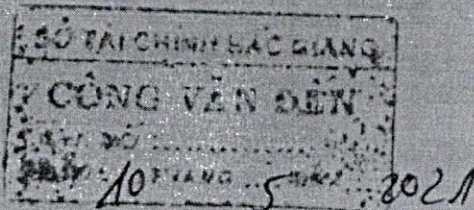 SỞ TÀI CHÍNH BẮC GIANG
CÔNG VĂN ĐẾN
SỐ ..............
10 THÁNG .. 5 NĂM 2021